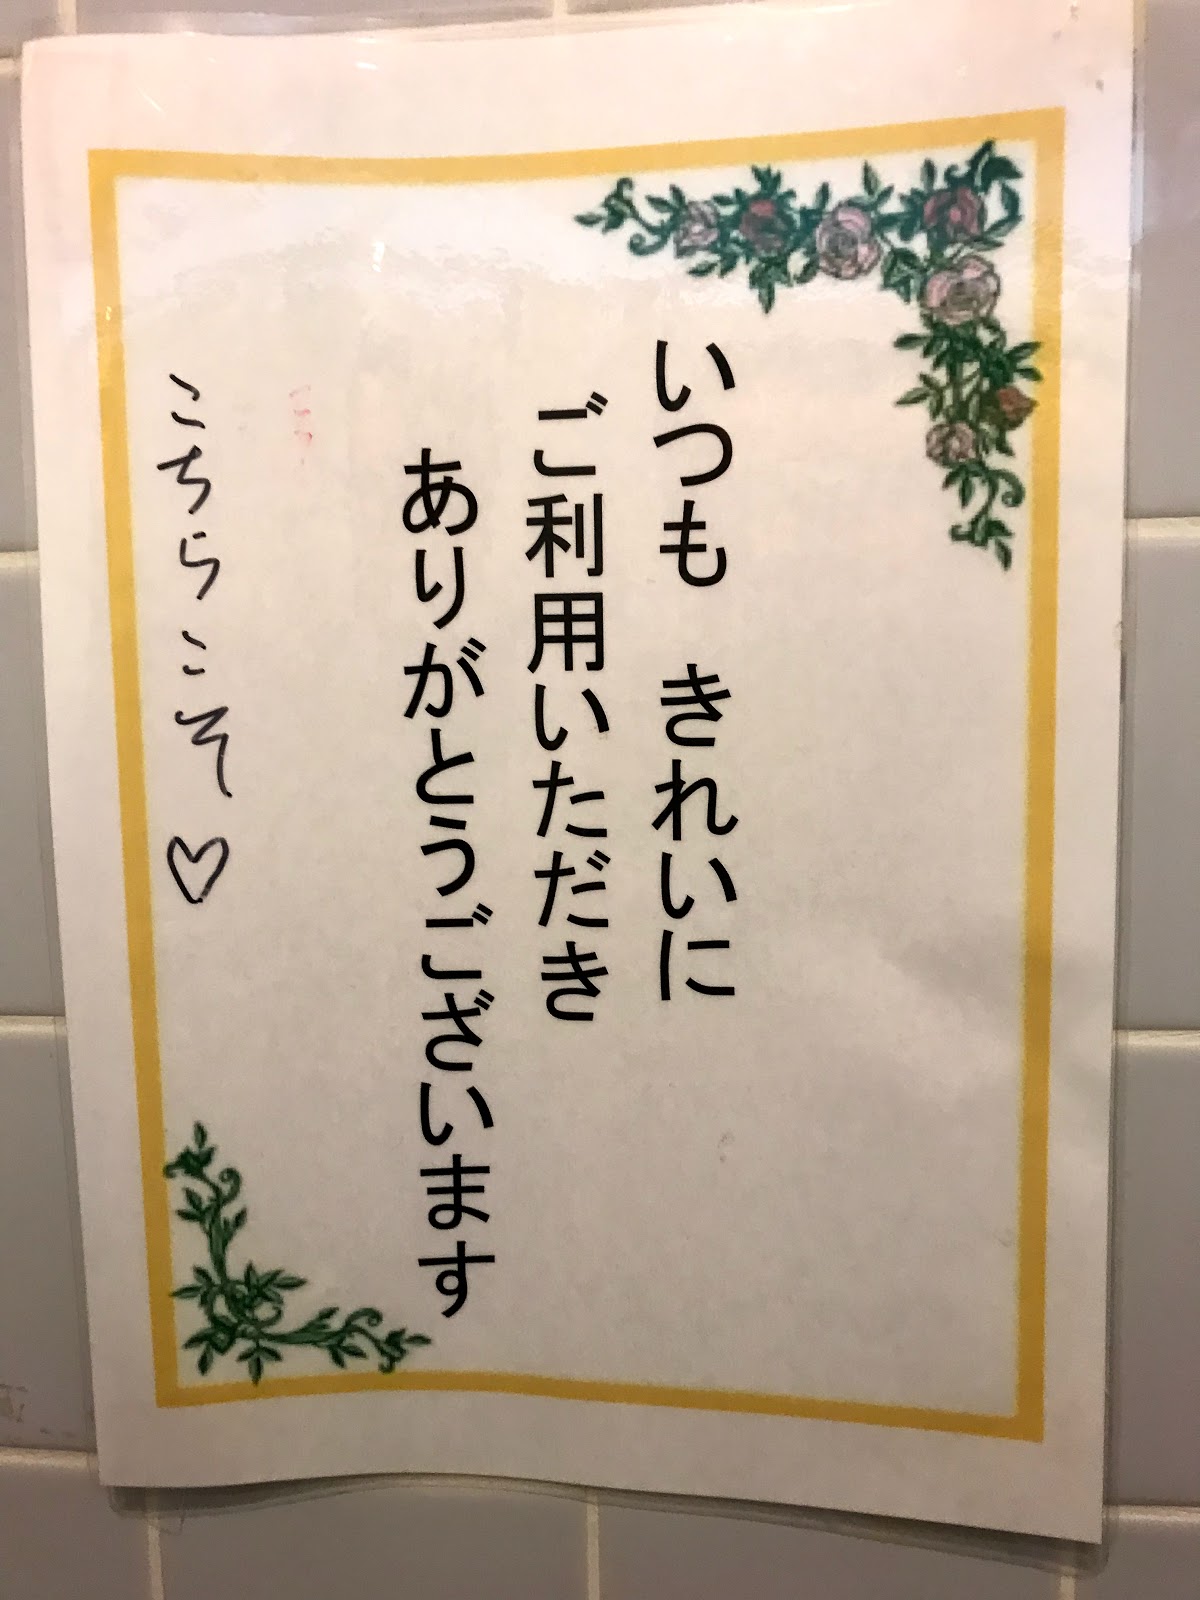 いつも　きれいに
ご利用いただき
ありがとうございます
こちらこそ♡